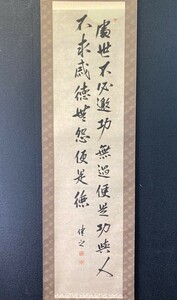 處世不必邀功無過便是功與人
不求感德無怨便是德